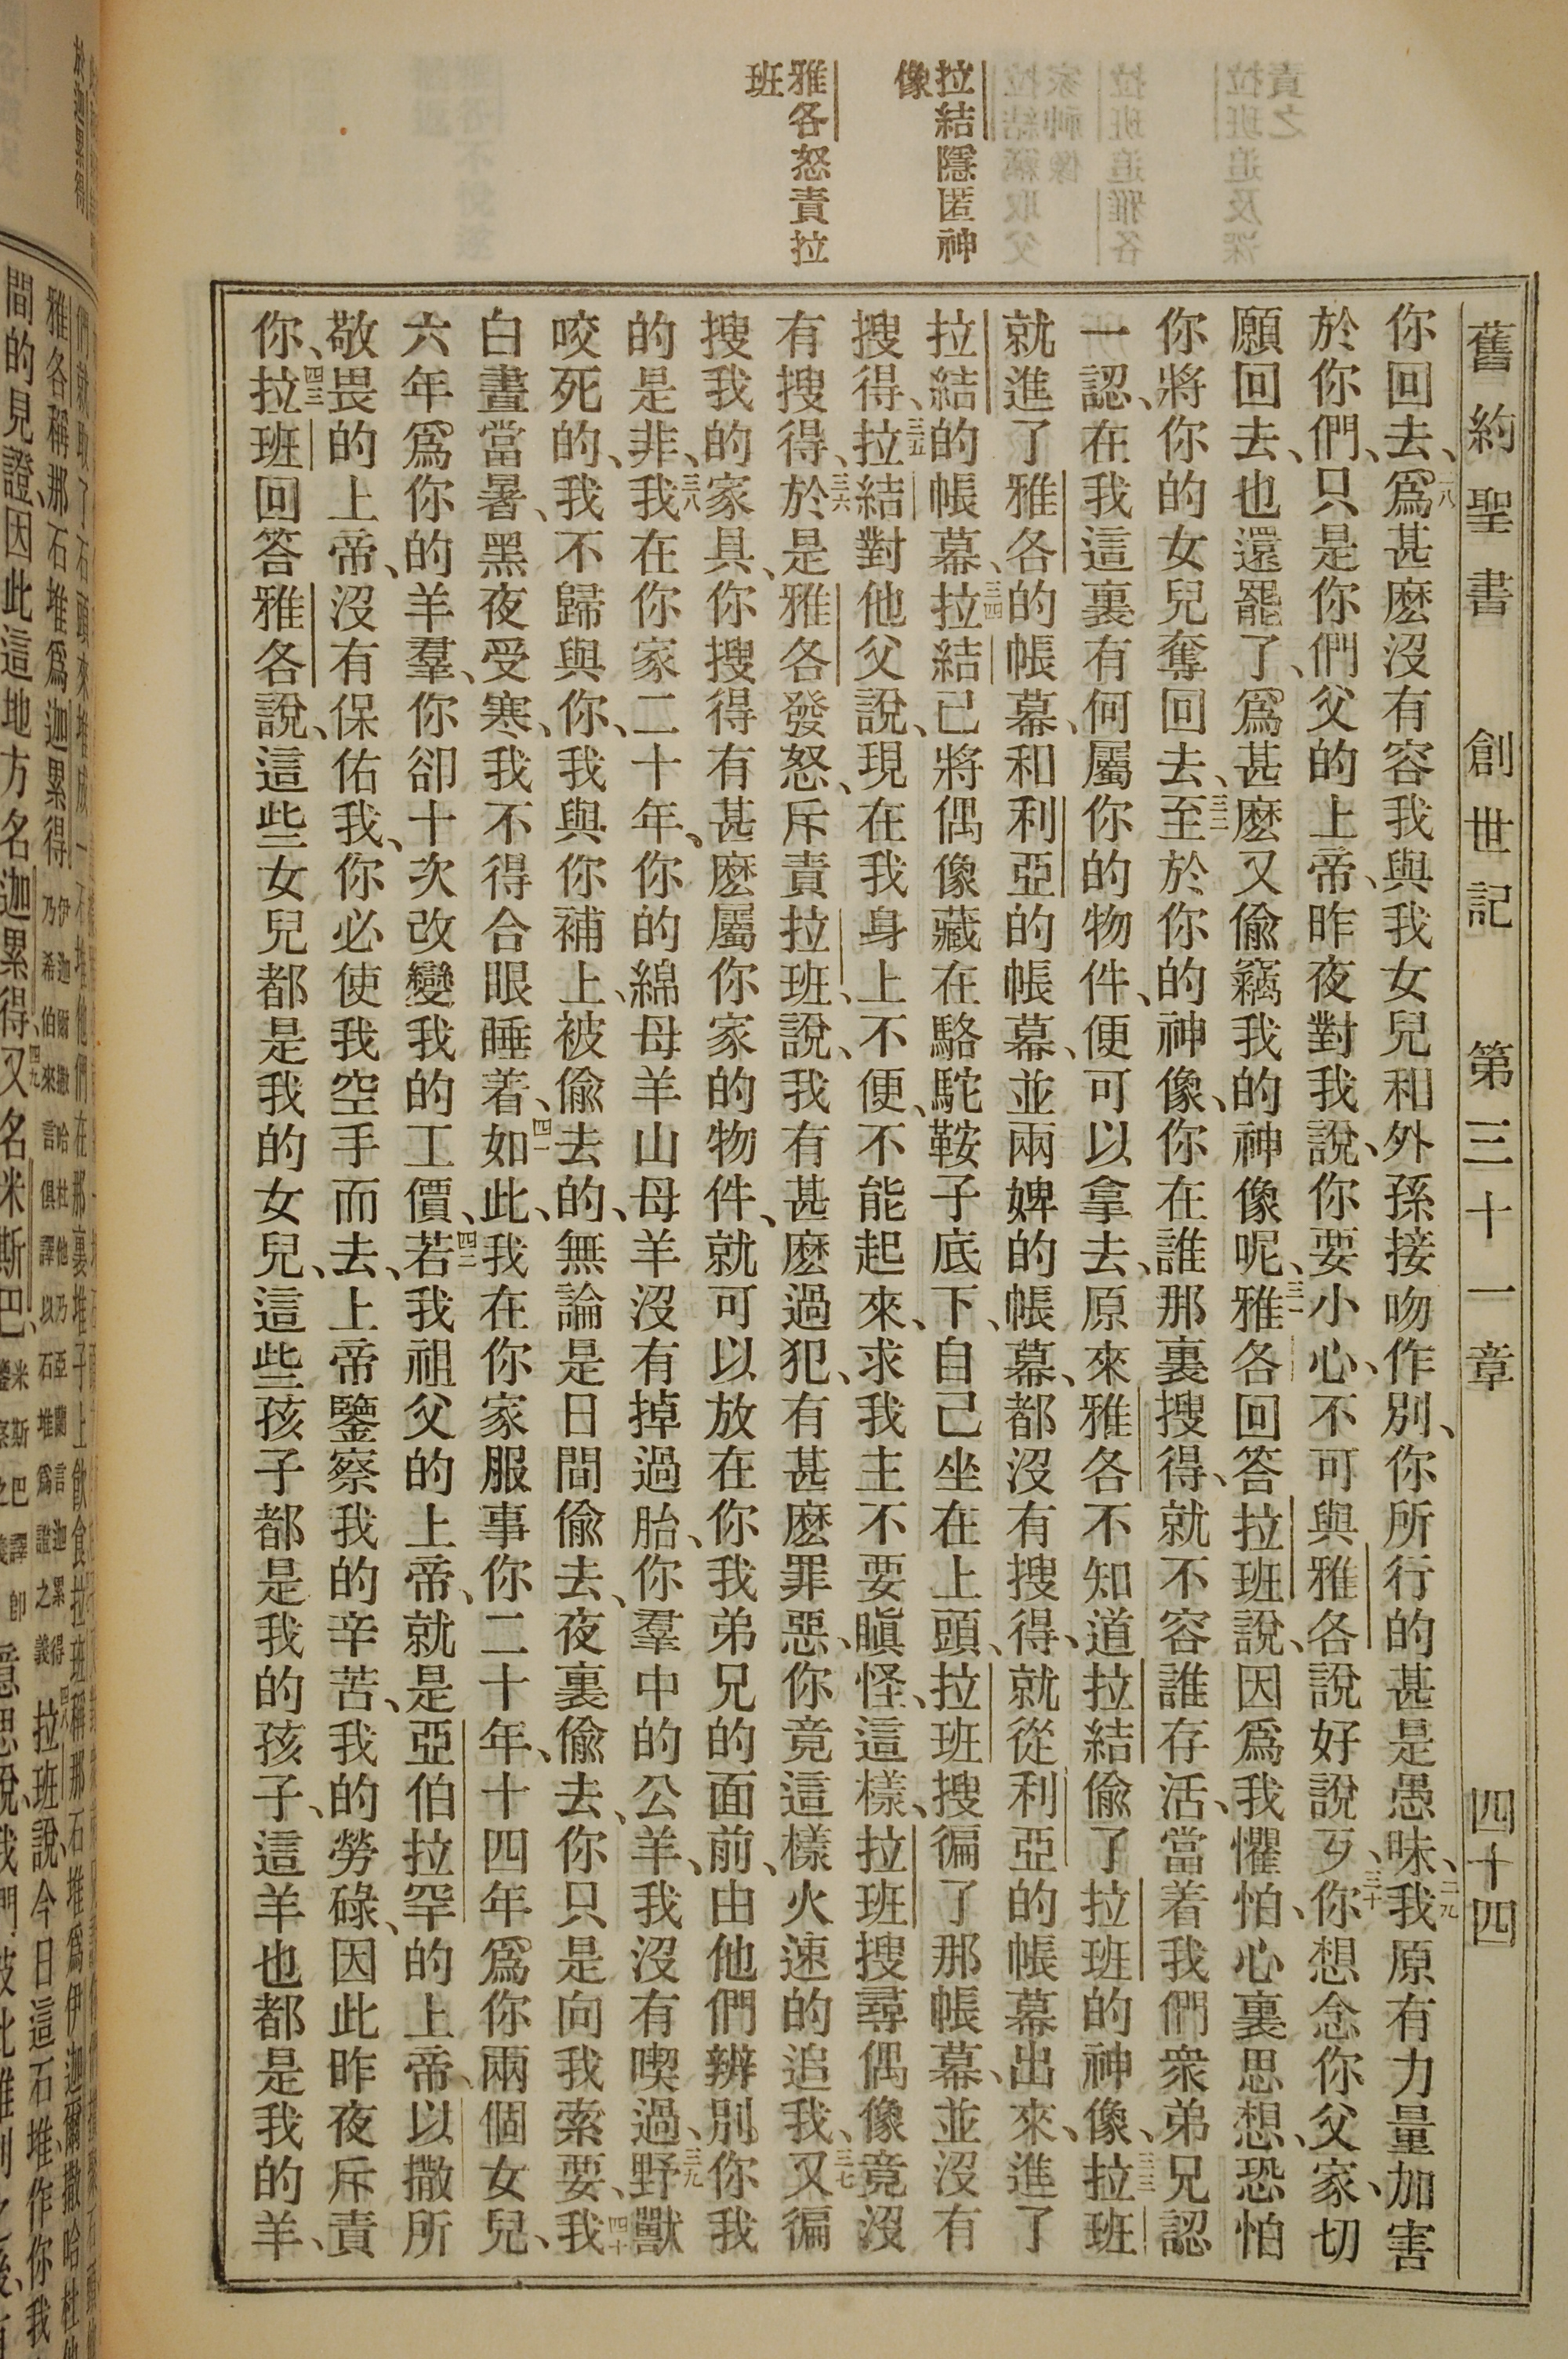 舊約聖書 創世記 第三十一章 四十四
拉結隱匿神
像
雅各怒責拉
班
你回去、二八爲甚麽沒有容我與我女兒和外孫接吻作別、你所行的甚是愚昧、二九我原有力量加害
於你們、只是你們父的上帝、昨夜對我說、你要小心、不可與雅各說好說歹、三十你想念你父家、切
願回去、也還罷了、爲甚麽又偸竊我的神像呢、三一雅各回答拉班說、因爲我懼怕、心裏思想、恐怕
你將你的女兒奪回去、三二至於你的神像、你在誰那裏搜得、就不容誰存活、當着我們衆弟兄認
一認、在我這裏有何屬你的物件、便可以拿去、原來雅各不知道拉結偸了拉班的神像、三三拉班
就進了雅各的帳幕、和利亞的帳幕、並兩婢的帳幕、都沒有搜得、就從利亞的帳幕出來、進了
拉結的帳幕、三四拉結已將偶像藏在駱駝鞍子底下、自己坐在上頭、拉班搜徧了那帳幕、並沒有
搜得、三五拉結對他父說、現在我身上不便、不能起來、求我主不要瞋怪、這樣、拉班搜尋偶像竟沒
有搜得、三六於是雅各發怒、斥責拉班、說、我有甚麽過犯、有甚麽罪惡、你竟這樣火速的追我、三七又徧
搜我的家具、你搜得有甚麽屬你家的物件、就可以放在你我弟兄的面前、由他們辨別你我
的是非、三八我在你家二十年、你的綿母羊山母羊沒有掉過胎、你羣中的公羊、我沒有喫過、三九野獸
咬死的、我不歸與你、我與你補上、被偸去的、無論是日間偸去、夜裏偸去、你只是向我索要、四十我
白晝當暑、黑夜受寒、我不得合眼睡着、四一如此、我在你家服事你二十年、十四年爲你兩個女兒、
六年爲你的羊羣、你卻十次改變我的工價、四二若我祖父的上帝、就是亞伯拉罕的上帝、以撒所
敬畏的上帝、沒有保佑我、你必使我空手而去、上帝鑒察我的辛苦、我的勞碌、因此昨夜斥責
你、四三拉班回答雅各說、這些女兒都是我的女兒、這些孩子都是我的孩子、這羊羊也都是我的羊、